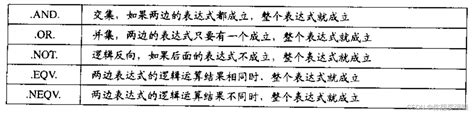 .AND. 交集，如果两边的表达式都成立，整个表达式就成立
.OR. 并集，两边的表达式只要有一个成立，整个表达式就成立
.NOT. 逻辑反向，如果后面的表达式不成立，整个表达式就成立
.EQV. 两边表达式的逻辑运算结果相同时，整个表达式就成立
.NEQV. 两边表达式的逻辑运算结果不同时，整个表达式就成立